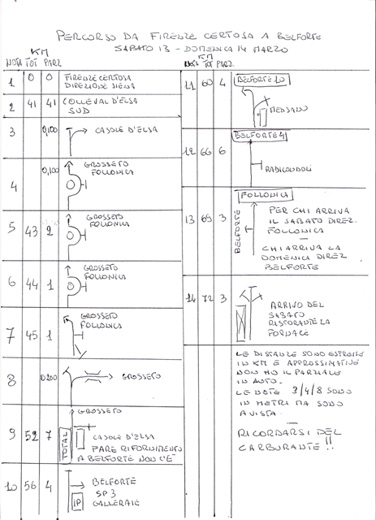 PERCORSO DA FIRENZE CERTOSA A BELFORTE
SABATO 13 - DOMENICA 14 MARZO
KM
NOTA TOT PARZ
1 0 0 FIRENZE CERTOSA
DIREZIONE SIENA
2 41 41 COLLEVAL D'ELSA
SUD
3 0,100 CASOLE D'ELSA
4 0,100 GROSSETO
FOLLONICA
5 43 2 GROSSETO
FOLLONICA
6 44 1 GROSSETO
FOLLONICA
7 45 1 GROSSETO
FOLLONICA
8 0,200 GROSSETO
9 52 7 GROSSETO
TOTAL
CASOLE D'ELSA
PARE RIFORNIMENTO
A BELFORTE NON C'È
10 56 4 BELFORTE
SP3
IP GALLERAIE
KM
NOTA TOT PARZ
11 60 4 BELFORTE 10
MENSANO
12 66 6 BELFORTE 4
RADICONDOLI
13 69 3 FOLLONICA
BELFORTE
PER CHI ARRIVA
IL SABATO DIREZ.
FOLLONICA
—
CHI ARRIVA LA
DOMENICA DIREZ
BELFORTE
14 72 3 ARRIVO DEL
SABATO
RISTORANTE LA
FORNACE
LE DISTANZE SONO ESPRESSE
IN KM E APPROSSIMATIVE
NON HO IL PARZIALE
IN AUTO.
LE NOTE 3/4/8 SONO
IN METRI MA SONO
A VISTA.
—
RICORDARSI DEL
CARBURANTE !!